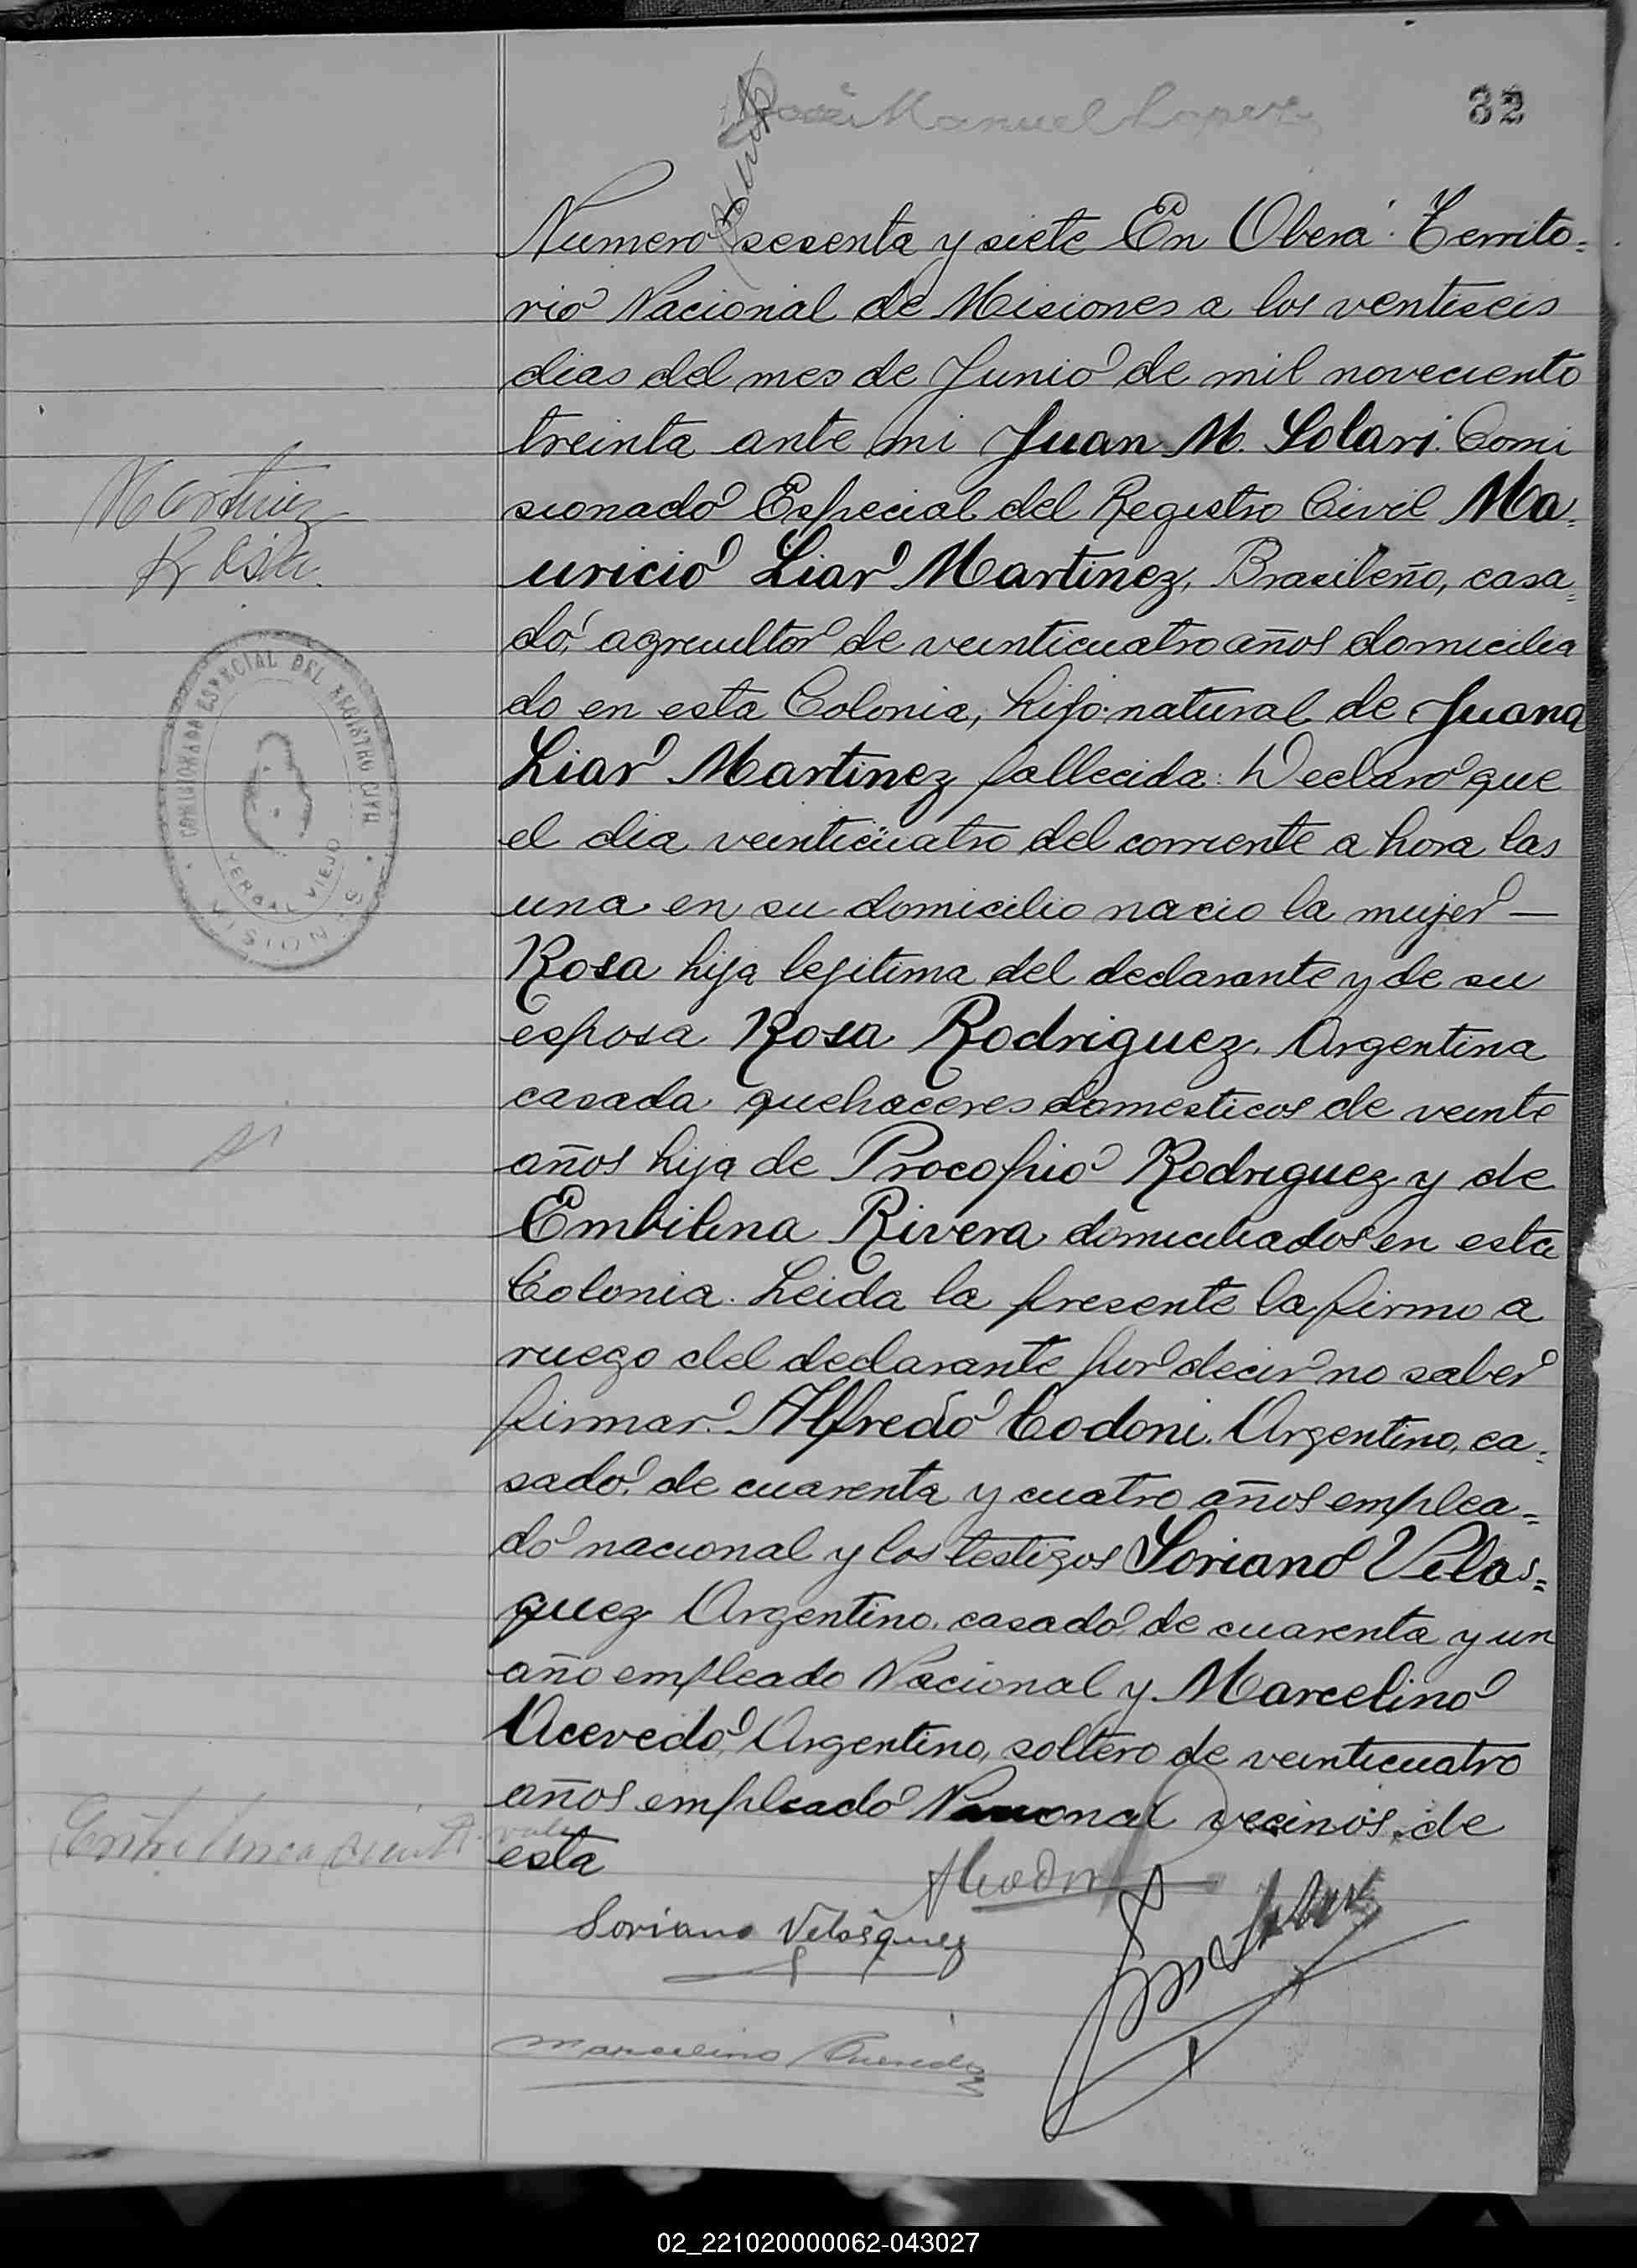 José Manuel Lopez
32
ciento
Numero sesenta y siete En Oberá. Territo=
rio Nacional de Misiones a los ventiseis
dias del mes de Junio de mil noveciento
treinta ante mi Juan M. Solari. Comi
sionado Especial del Registro Civil Ma=
uricio Liar Martinez, Brasileño, casa=
do, agricultor de veinticuatro años domicilia
do en esta Colonia, hijo natural de Juana
Liar Martinez fallecida: Declaro que
el dia veinticuatro del corriente a hora las
una en su domicilio nacio la mujer —
Rosa hija legitima del declarante y de su
esposa Rosa Rodriguez. Argentina
casada quehaceres domesticos de veinte
años hija de Procopio Rodriguez y de
Embilina Rivera domiciliados en esta
Colonia. Leida la presente la firmo a
ruego del declarante por decir no saber
firmar. Alfredo Codoni. Argentino, ca=
sado de cuarenta y cuatro años emplea=
do nacional y los testigos Soriano Velas=
quez Argentino, casado de cuarenta y un
año empleado Nacional y Marcelino
Acevedo, Argentino, soltero de veinticuatro
años empleado Nacional vecinos de
esta
Martinez
Rosa.
COMISIONADA ESPECIAL DEL REGISTRO CIVIL
YERBAL VIEJO
MISIONES
Entre linea ciento vale
ACodoni
Soriano Velásquez
Marcelino Acevedo
02_221020000062-043027